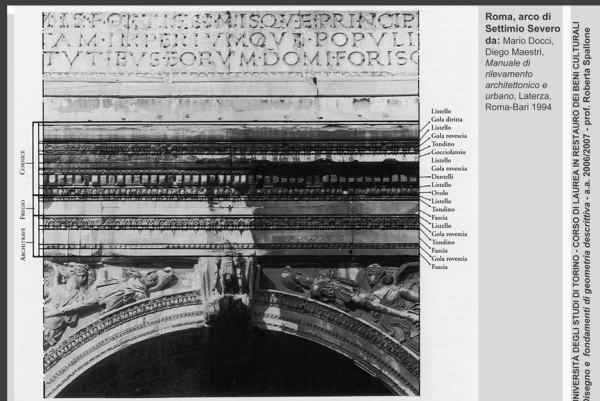 MIS·FORTISSIMISQVE·PRINCIP
IAM·IMPERIVMQVE·POPVLI
TVTIBVS·EORVM·DOMI·FORISQ
CORNICE
FREGIO
ARCHITRAVE
Listello
Gola diritta
Listello
Gola rovescia
Tondino
Gocciolatoio
Listello
Gola rovescia
Dentelli
Listello
Ovolo
Listello
Tondino
Fascia
Listello
Gola rovescia
Tondino
Fascia
Gola rovescia
Fascia
Roma, arco di
Settimio Severo
da: Mario Docci,
Diego Maestri,
Manuale di
rilevamento
architettonico e
urbano, Laterza,
Roma-Bari 1994
NIVERSITÀ DEGLI STUDI DI TORINO - CORSO DI LAUREA IN RESTAURO DEI BENI CULTURALI
isegno e fondamenti di geometria descrittiva - a.a. 2006/2007 - prof. Roberta Spallone